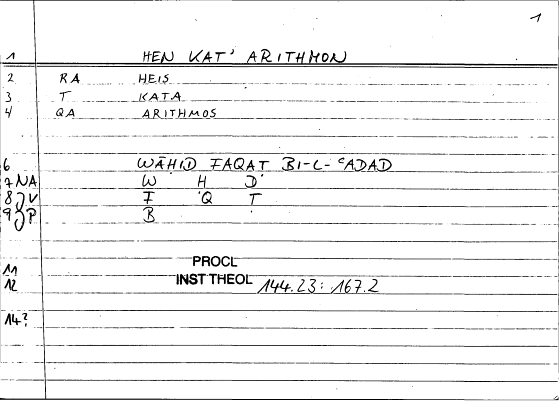 1
1 HEN KAT' ARITHMON
2 RA HEIS
3 T KATA
4 QA ARITHMOS
6 WĀḤID FAQAṬ BI-L-ʿADAD
7 NA W Ḥ D
8 JV F Q Ṭ
9 JP B
11 PROCL
12 INST THEOL 144.23: 167.2
14?